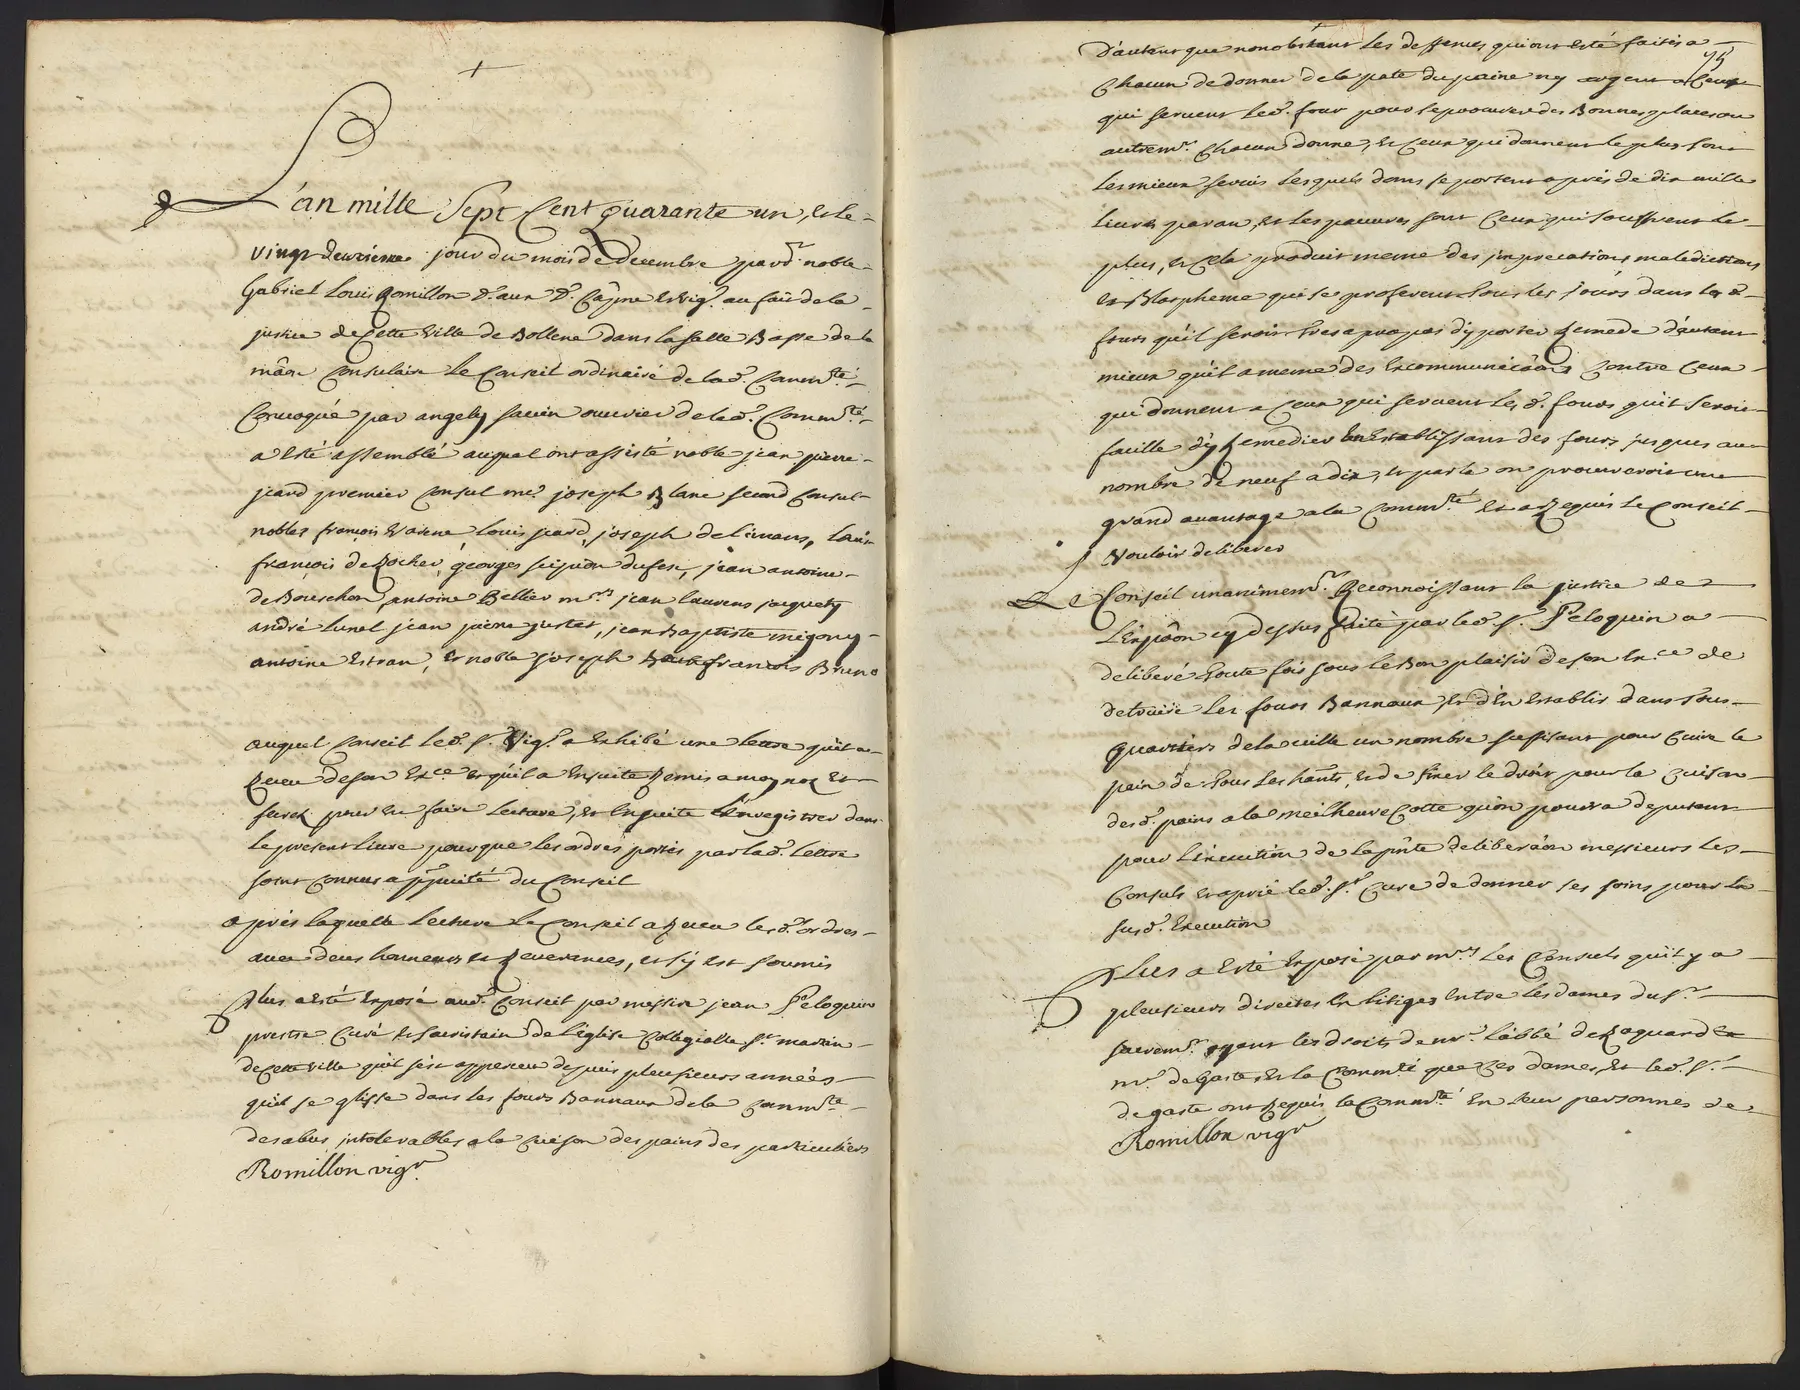 L'an mille Sept Cent quarante un, et le
vingt deuxieme jour du mois de decembre pard.t noble
Gabriel Louis Romillon d.r aux d.ts Capne et vig.r au fait de la
justice de Cette ville de Bollene dans la salle Basse de la
mâon Consulaire Le Conseil ordinaire de lad. Commté
Convoqué par angely savin ouvrier de lad. Commté
a esté assemblé auquel ont assisté noble jean pierre
jeard premier Consul mr joseph Blanc second Consul
nobles françois louis jeard, joseph delimans, louis
françois de Rocher, georges dufesc, jean antoine
de Bouschon, antoine Bellier mrs jean laurens jacquety
andré lunel jean pierre justet, jean Baptiste migony
antoine Estran, et noble joseph françois Bruno
auquel Conseil led. Sr. Vigr a Exhibé une lettre qu'il a
Receu de son Exce et qu'il a Ensuite Remis a moy nore et
secret. pour en faire lecture, et Ensuite l'Enregistrer dans
le present livre pour que les ordres portés par lad. lettre
soint connus a du Conseil
après laquelle lecture le Conseil a Receu lesd. ordres
avec deus honneurs et Reverances, et s'y est soumis
Plus a Esté Exposé aud. Conseil par messire jean Peloquin
prestre Curé et sacristain de l'église Collegialle St martin
de Cette ville qu'il s'est apperceu depuis plusieurs années
qu'il se glisse dans les fours Bannaux de la Commté
des abus intolerables a la cuison des pains des particuliers
Romillon vigr
75
D'autant que nonobstant les deffences qui ont esté faites a
Chacun de donner de la pate du paine ny argent a Ceux
qui servent led. four pour se procurer des Bonnes places ou
autremt. Chacun donne, et Ceux qui donnent le plus sont
les mieux servis lesquels dons se portent a près de dix mille
livres par an, et les pauvres sont Ceux qui souffrent le
plus, et Cela produit meme des imprecations maledictions
et Blaspheme qui se proferent tous les jours dans lesd.
fours qu'il seroit tres a propos d'y porter Remede d'autant
mieux qu'il a meme des Excommunicâons Contre Ceux
qui donnent a Ceux qui servent lesd. fours qu'il seroit
facille d'y Remedier En Establissant des fours jusques au
nombre de neuf a dix, et par la on procureroit un
grand avantage a la Commté Et a Requis le Conseil
Vouloir deliberer
Le Conseil unanimemt. Reconnoissant la justice de
L'Expôon cy dessus faite par led. Sr. Peloquin a
deliberé toute fois sous le Bon plaisir de son Exce de
detruire les fours Bannaux, et d'En Establir dans tous
quartiers de la ville un nombre suffisant pour Cuire le
pain de tous les hants, et de fixer le droit pour la Cuison
desd. pains a la meilheure Cotte qu'on pourra deputant
pour l'execution de la pnte deliberâon messieurs les
Consuls Et a prié led. Sr Curé de donner ses soins pour la
susd. Execution
Plus a Esté Exposé par mrs les Consuls qu'il y a
plusieurs directes En litiges Entre les dames du St
sacremt. ayant les droits de mr. l'abbé de Raguard Et
mr. de Gaste, et la Commté que Ces dames, et led. Sr
de gaste ont Requis la Commté En leur personnes de
Romillon vigr